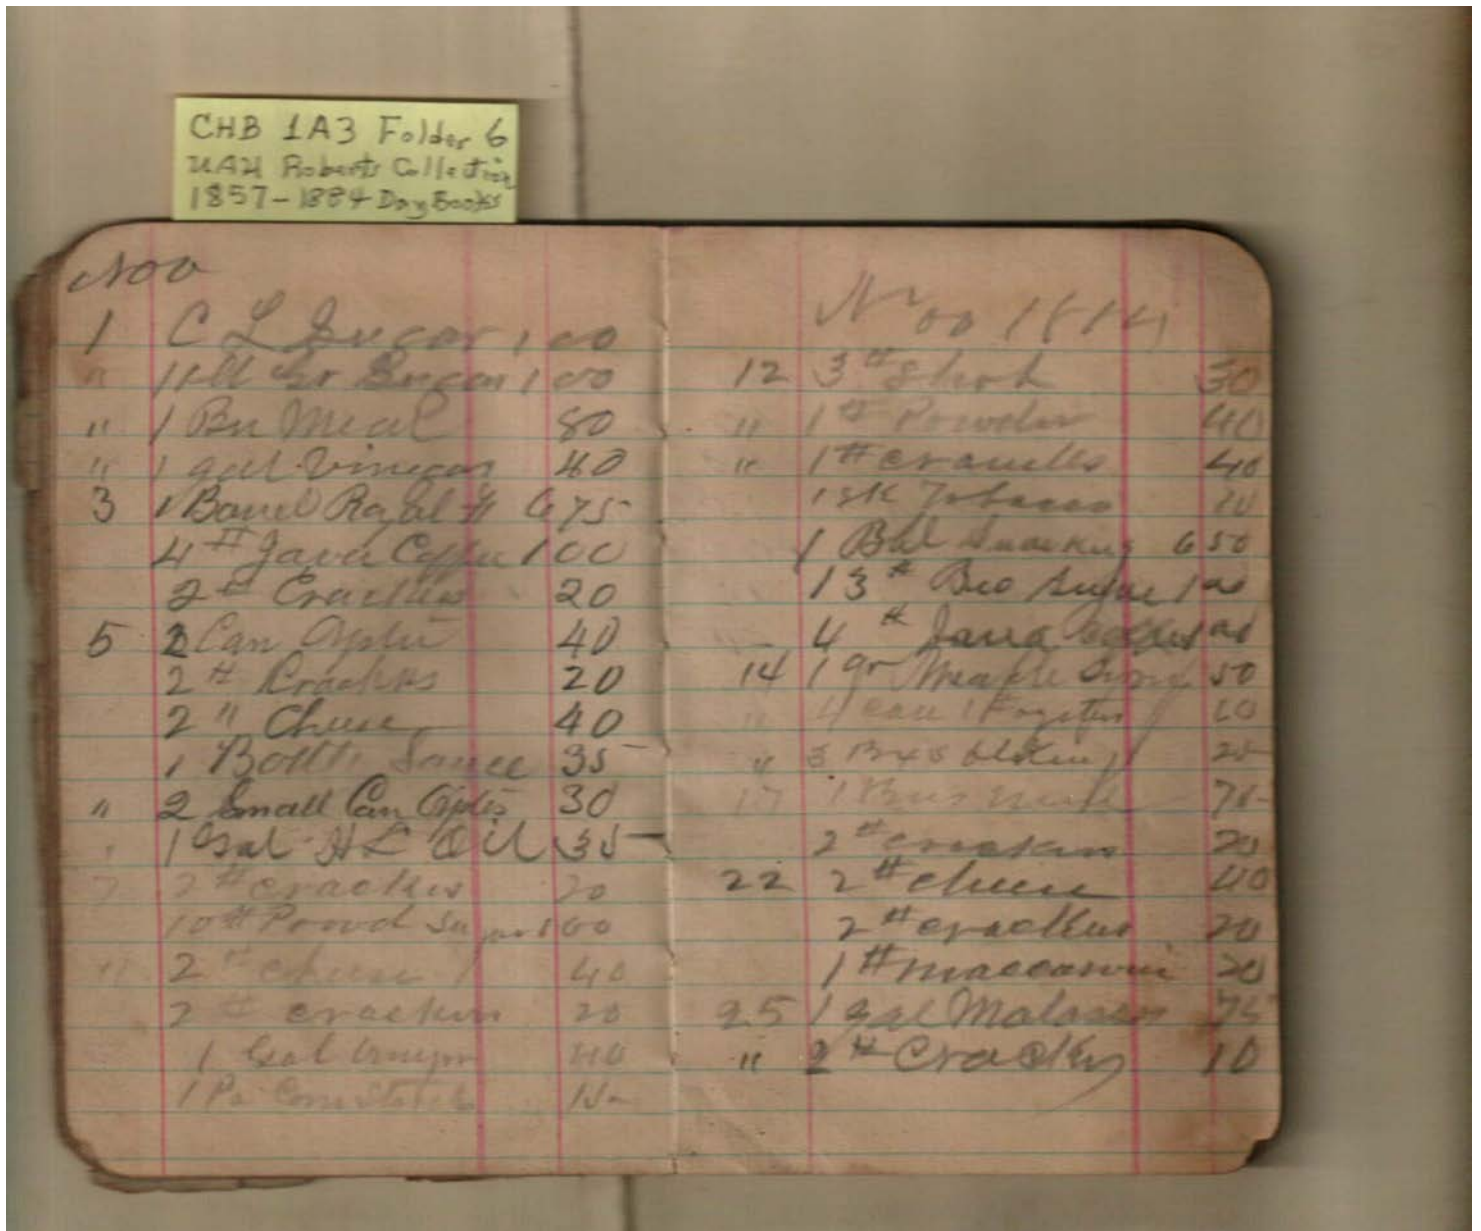 CHB 1A3 Folder 6
UAH Roberts Collection
1857-1884 Day Books
Nov
1 C L Sugar 1 00
" 11 # Gr Sugar 1 00
" 1 Bu Meal 80
" 1 gal Vinegar 40
3 1 Barrel Royal 6 75
4 # Java Coffee 1 00
2 # Crackers 20
5 2 Can Oysters 40
2 # Crackers 20
2 " Cheese 40
1 Bottle Sauce 35
" 2 Small Can Oysters 30
1 Gal H L Oil 35
7 2 # crackers 20
10 # Powd Sugar 1 00
11 2 # cheese 40
2 # crackers 20
1 Gal Vinegar 40
1 Pa Corn Starch 15
Nov
12 3 # Shot 30
" 1 # Powder 40
" 1 # 40
1 sk Tobacco 10
1 Bbl 6 50
13 # Bro Sugar 1 00
4 # Java Coffee 1 00
14 1 qr Maple Syrup 50
" 4 can 60
" 3 Bxs 25
17 1 Bus Meal 75
2 # crackers 20
22 2 # cheese 40
2 # crackers 20
1 # maccaroni 20
25 1 gal Molasses 75
" 2 # Crackers 10